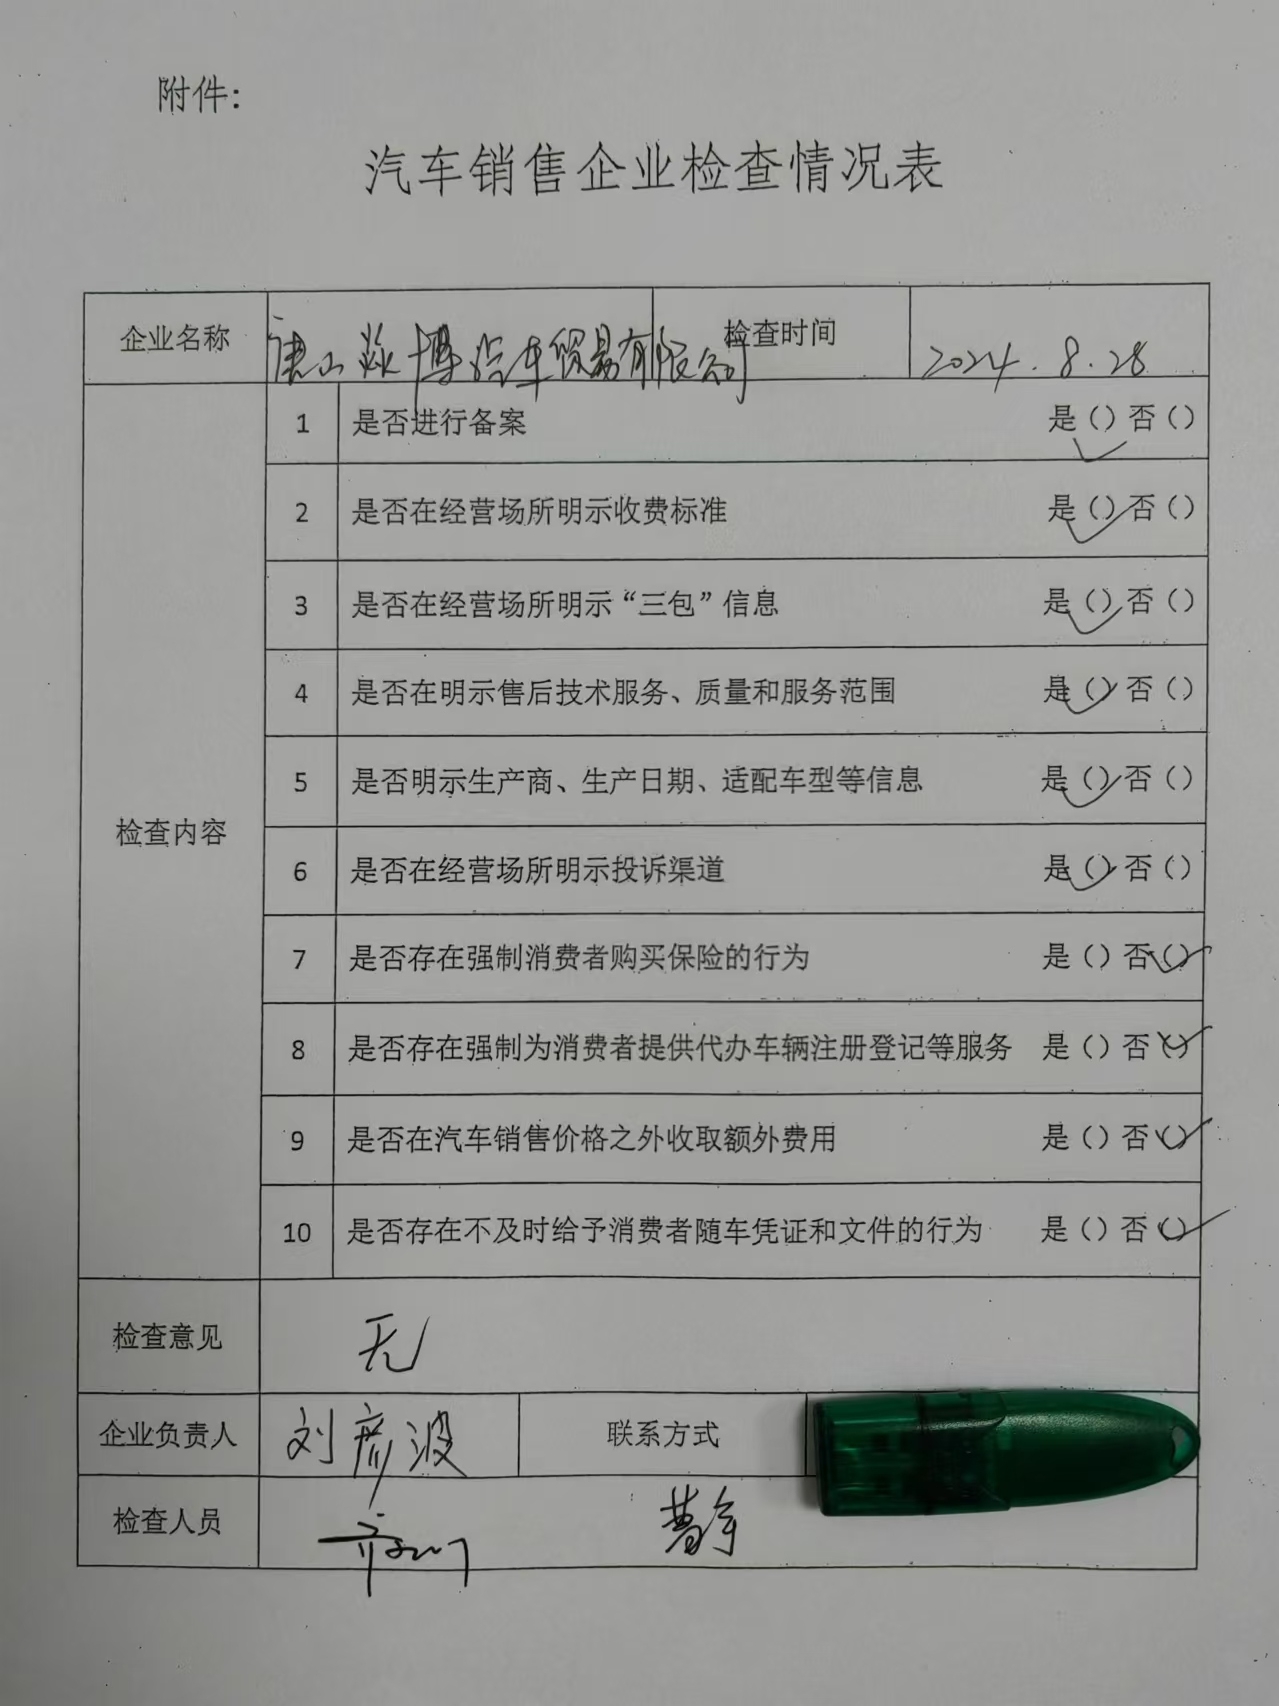 附件:
汽车销售企业检查情况表
企业名称 唐山 博汽车贸易有限公司 检查时间 2024.8.28
检查内容
1 是否进行备案 是()否()
2 是否在经营场所明示收费标准 是()否()
3 是否在经营场所明示“三包”信息 是()否()
4 是否在明示售后技术服务、质量和服务范围 是()否()
5 是否明示生产商、生产日期、适配车型等信息 是()否()
6 是否在经营场所明示投诉渠道 是()否()
7 是否存在强制消费者购买保险的行为 是()否()
8 是否存在强制为消费者提供代办车辆注册登记等服务 是()否()
9 是否在汽车销售价格之外收取额外费用 是()否()
10 是否存在不及时给予消费者随车凭证和文件的行为 是()否()
检查意见 无
企业负责人 刘彦波 联系方式
检查人员